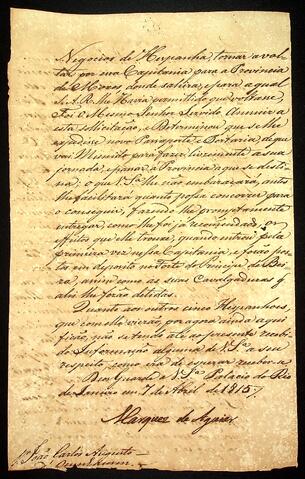 Negocios de Hespanha, tornar a vol-
tar por essa Capitania para a Provincia
de Moxos, donde sahira, e para a qual
S. A. R. lhe havia permittido que voltasse.
Foi o Mesmo Senhor Servido Annuir a
esta solicitação, e Determinou que se lhe
expedisse novo Passaporte, e Portaria de que
vai Munido para fazer livremente a sua
jornada, e passar á Provincia a que se desti-
na; o que V. Sª lhe não embaraçará, antes
lhe facilitará quanto possa concorrer para
o conseguir, fazendo lhe promptamente
entregar, como lhe foi já recomendado, os
effeitos que elle trouxe, quando entrou pela
primeira vez nessa Capitania, e forão pos-
tos em deposito no Forte do Principe da Bei-
ra, assim como as suas Cavalgaduras q
alli lhe forão detidas.
Quanto aos outros cinco Hespanhoes,
que com elle vierão, por agora ainda aqui
ficão, não se tendo até ao presente recebi-
do Informação alguma de V. Sª a seu
respeito, como era de esperar receber-se.
Deos Guarde a V. Sª Palacio do Rio
de Janeiro em 1 de Abril de 1815
Marquez de Aguiar
Sr João Carlos Augusto
d'Oeynhausen